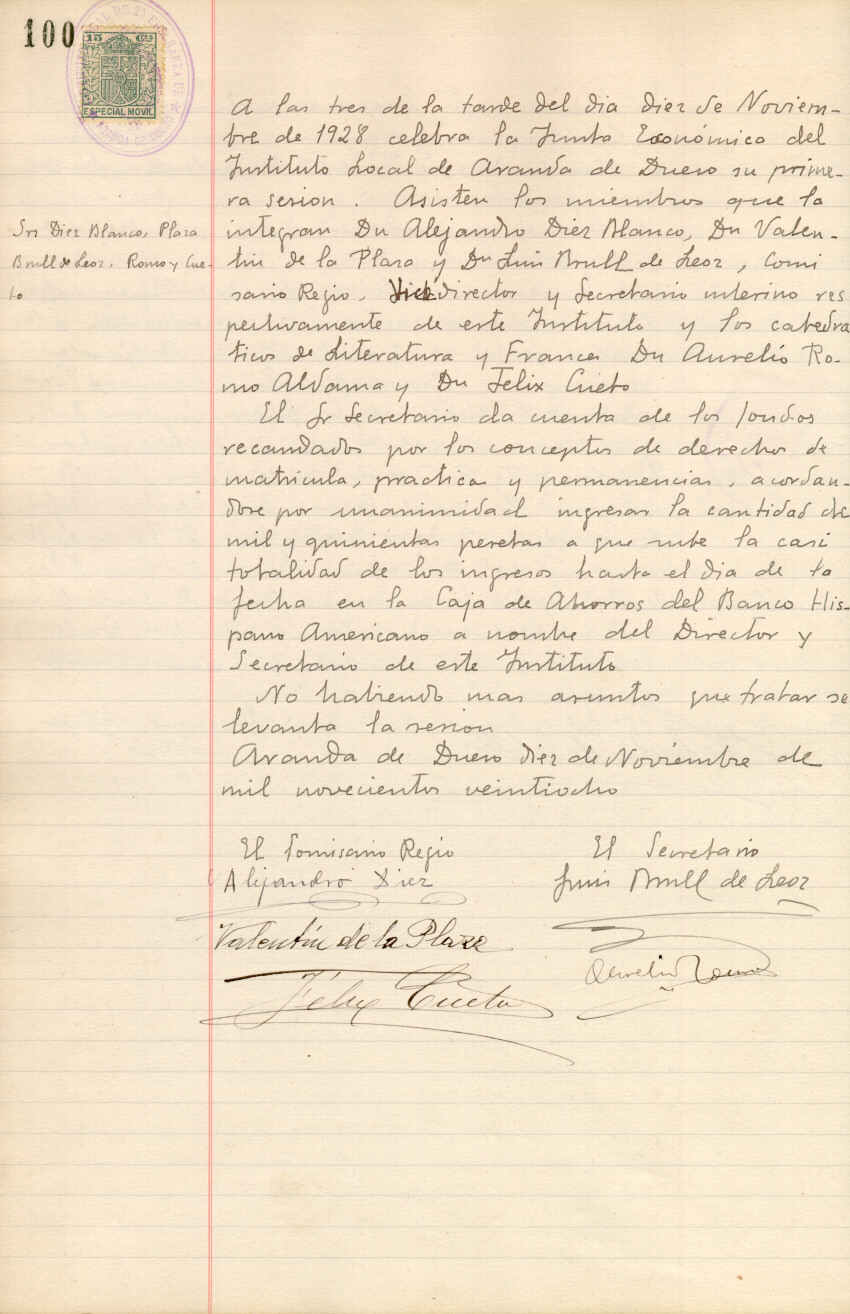 100
15 Cts
ESPECIAL MOVIL
A las tres de la tarde del dia diez de Noviem-
bre de 1928 celebra la Junta Económica del
Instituto Local de Aranda de Duero su prime-
ra sesion. Asisten los miembros que la
Srs Diez Blanco, Plaza
Brull de Leoz, Romo y Cue-
to
integran Dn Alejandro Diez Blanco, Dn Valen-
tin de la Plaza y Dn Luis Brull de Leoz, Comi
sario Regio, Vicedirector y Secretario interino res
pectivamente de este Instituto y los catedra
ticos de Literatura y Frances Dn Aurelio Ro-
mo Aldama y Dn Felix Cueto
El Sr Secretario da cuenta de los fondos
recaudados por los conceptos de derechos de
matricula, practicas y permanencias, acordan-
dose por unanimidad ingresar la cantidad de
mil y quinientas pesetas a que sube la casi
totalidad de los ingresos hasta el dia de la
fecha en la Caja de Ahorros del Banco His-
pano Americano a nombre del Director y
Secretario de este Instituto
No habiendo mas asuntos que tratar se
levanta la sesion
Aranda de Duero diez de Noviembre de
mil novecientos veintiocho
El Comisario Regio
Alejandro Diez
El Secretario
Luis Brull de Leoz
Valentín de la Plaza
Aurelio Romo
Félix Cueto